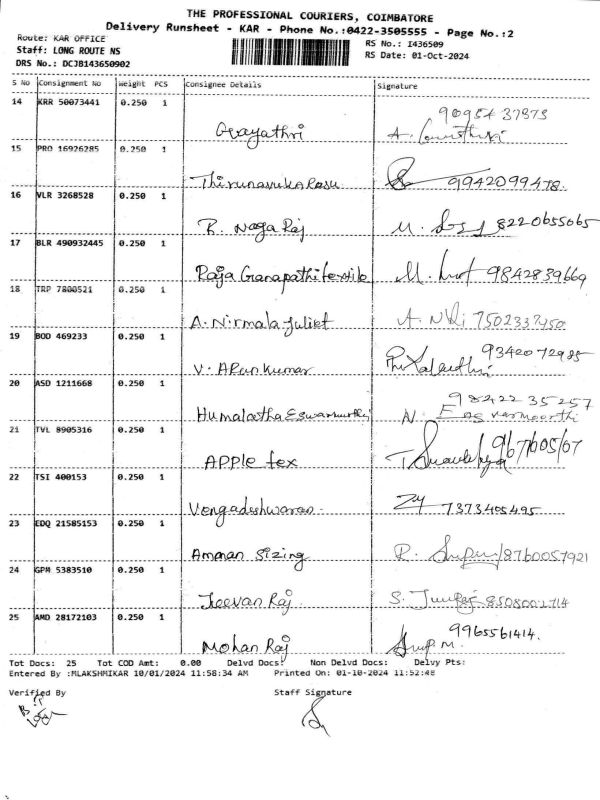 THE PROFESSIONAL COURIERS, COIMBATORE
Delivery Runsheet - KAR - Phone No.:0422-3505555 - Page No.:2
Route: KAR OFFICE RS No.: I436509
Staff: LONG ROUTE NS RS Date: 01-Oct-2024
DRS No.: DCJB143650902
S No Consignment No Weight PCS Consignee Details Signature
14 KRR 50073441 0.250 1
Gayathri A.
15 PRO 16926285 0.250 1
Thirunavukarasu 9942099478.
16 VLR 3268528 0.250 1
R. Nagaraj M. 8220655065
17 BLR 490932445 0.250 1
Raja Ganapathi textile M. 9842839669
18 TRP 7800521 0.250 1
A. Nirmala Juliet A. 7502337450
19 BOD 469233 0.250 1 9342072985
V. Arun kumar
20 ASD 1211668 0.250 1 9842235257
Humalatha Eswarmurthy N. Easwarmoorthi
21 TVL 8905316 0.250 1
Apple tex
22 TSI 400153 0.250 1
Vengadeshwaran 7373405495
23 EDQ 21585153 0.250 1
Amman Sizing R. 8760057921
24 GPM 5383510 0.250 1
Jeevan Raj S. 8508002714
25 AMD 28172103 0.250 1 9965561414.
Mohan Raj
Tot Docs: 25 Tot COD Amt: 0.00 Delvd Docs: Non Delvd Docs: Delvy Pts:
Entered By :MLAKSHMIKAR 10/01/2024 11:58:34 AM Printed On: 01-10-2024 11:52:48
Verified By Staff Signature